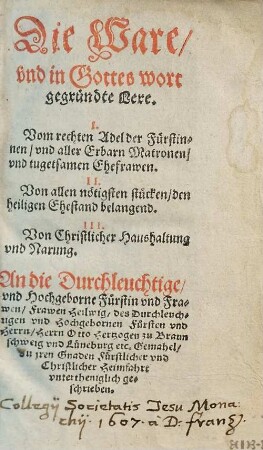 Die Ware/
vnd in Gottes wort
gegründte Lere.
I.
Vom rechten Adel der Fürstin-
nen/ vnd aller Erbarn Matronen/
vnd tugetsamen Ehefrawen.
II.
Von allen nötigsten stücken/ den
heiligen Ehestand belangend.
III.
Von Christlicher Haushaltung
vnd Narung.
An die Durchleuchtige/
vnd Hochgeborne Fürstin vnd Fra-
wen/ Frawen Heilwig/ des Durchleuch-
tigen vnd Hochgebornen Fürsten vnd
Herrn/ Herrn Otto Hertzogen zu Braun
schweig vnd Lüneburg etc. Gemahel/
zu jren Gnaden Fürstlicher vnd
Christlicher Heimfahrt
vntertheniglich ge-
schrieben.
Collegij Societatis Iesu Mona-
chij. 1607. à D. franz.